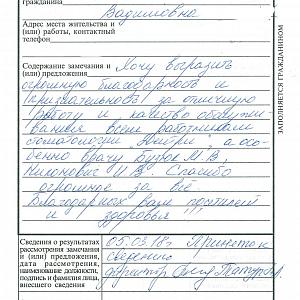 гражданина
Вадимовна
Адрес места жительства и
(или) работы, контактный
телефон
Содержание замечания и Хочу выразить
(или) предложения
огромную благодарность и
признательность за отличную
работу и качество обслужи-
вания всем работникам
стоматологии а осо-
бенно врачу М.В,
И.В. Спасибо
огромное за всё.
Благодарных вам
и здоровья !!!
ЗАПОЛНЯЕТСЯ ГРАЖДАНИНОМ
Сведения о результатах 05.03.18г. Принято к
рассмотрения замечания сведению
и (или) предложения,
дата рассмотрения,
наименование должности, директор
подпись и фамилия лица,
внесшего сведения